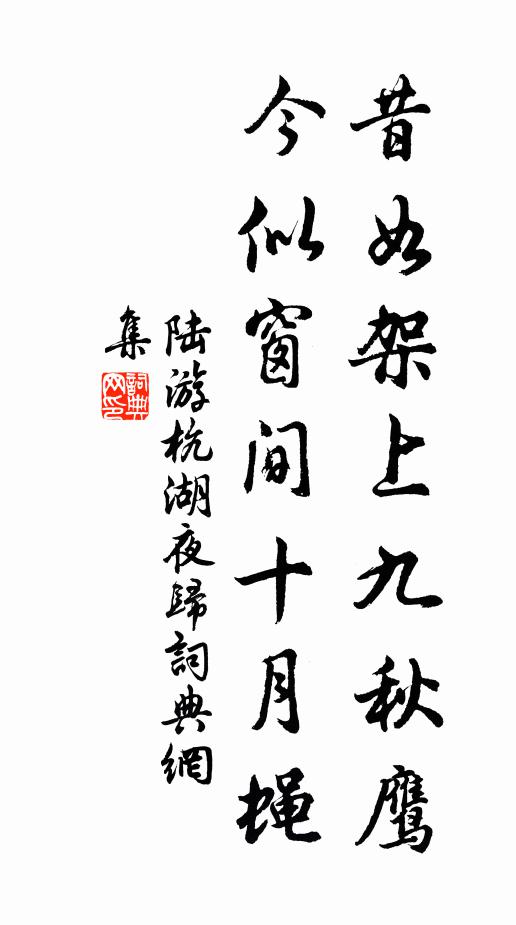 昔如架上九秋鹰
今似窗间十月蝇
陆游杭湖夜歸詞典網
集
詞典网印